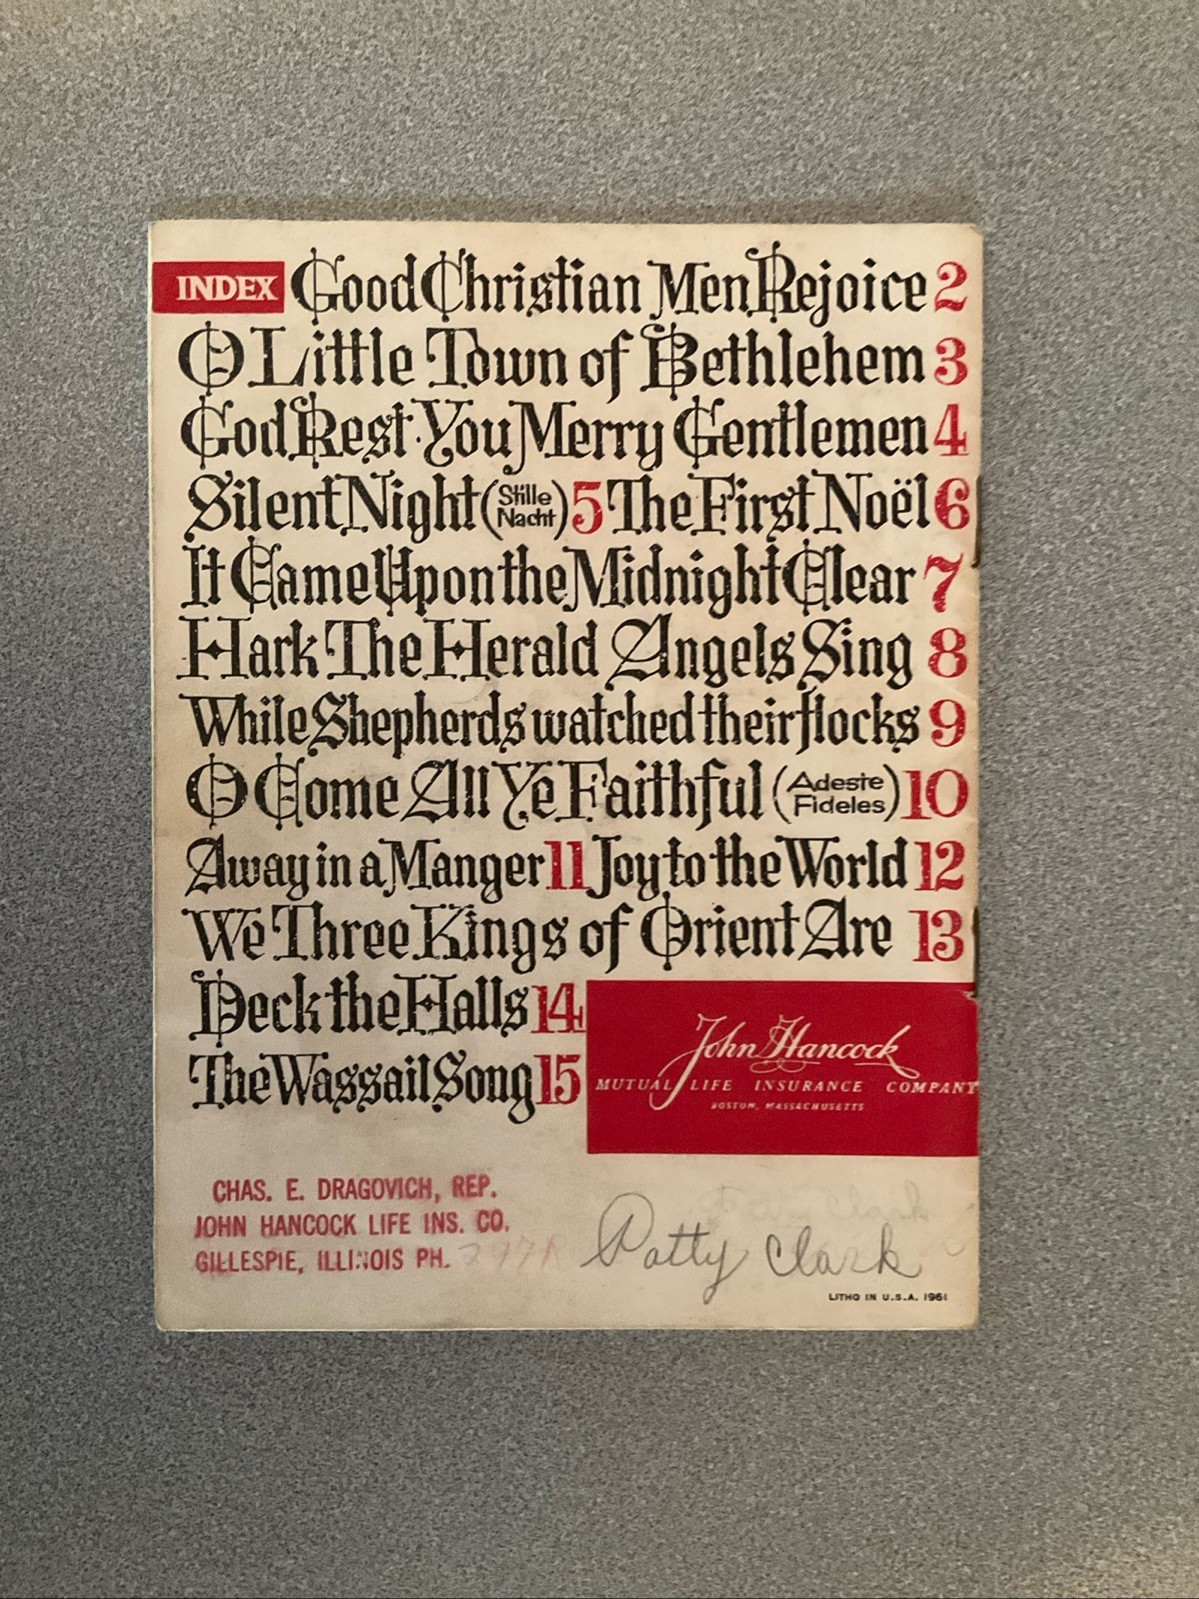 INDEX Good Christian Men Rejoice 2
O Little Town of Bethlehem 3
God Rest You Merry Gentlemen 4
Silent Night (Stille Nacht) 5 The First Noël 6
It Came Upon the Midnight Clear 7
Hark The Herald Angels Sing 8
While Shepherds watched their flocks 9
O Come All Ye Faithful (Adeste Fideles) 10
Away in a Manger 11 Joy to the World 12
We Three Kings of Orient Are 13
Deck the Halls 14
The Wassail Song 15
John Hancock
MUTUAL LIFE INSURANCE COMPANY
BOSTON, MASSACHUSETTS
CHAS. E. DRAGOVICH, REP.
JOHN HANCOCK LIFE INS. CO.
GILLESPIE, ILLINOIS PH.
Patty Clark
LITHO IN U.S.A. 1961